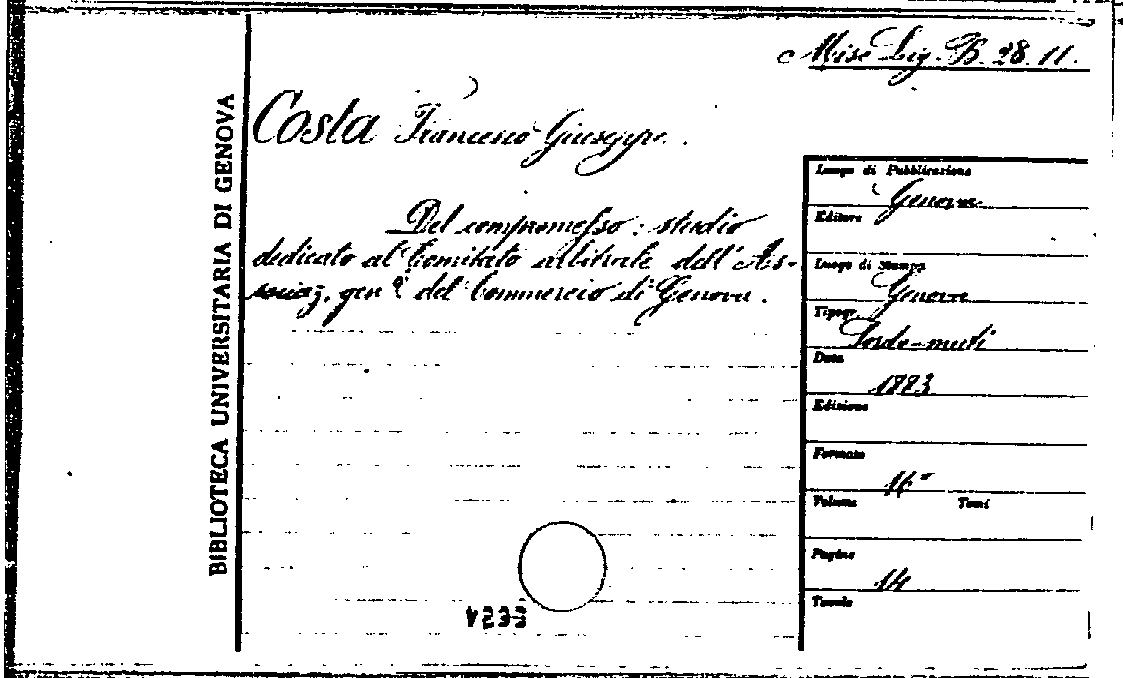 Misc. Lig. B. 28. 11.
BIBLIOTECA UNIVERSITARIA DI GENOVA
Costa Francesco Giuseppe.
Del compromesso: studio
dedicato al Comitato arbitrale dell'As-
sociaz. gen.e del Commercio di Genova.
Luogo di Pubblicazione
Genova
Editore
Luogo di Stampa
Genova
Tipogr.
Sordo-muti
Data
1883
Edizione
Formato
16°
Volume Tomi
Pagine
14
Tavole